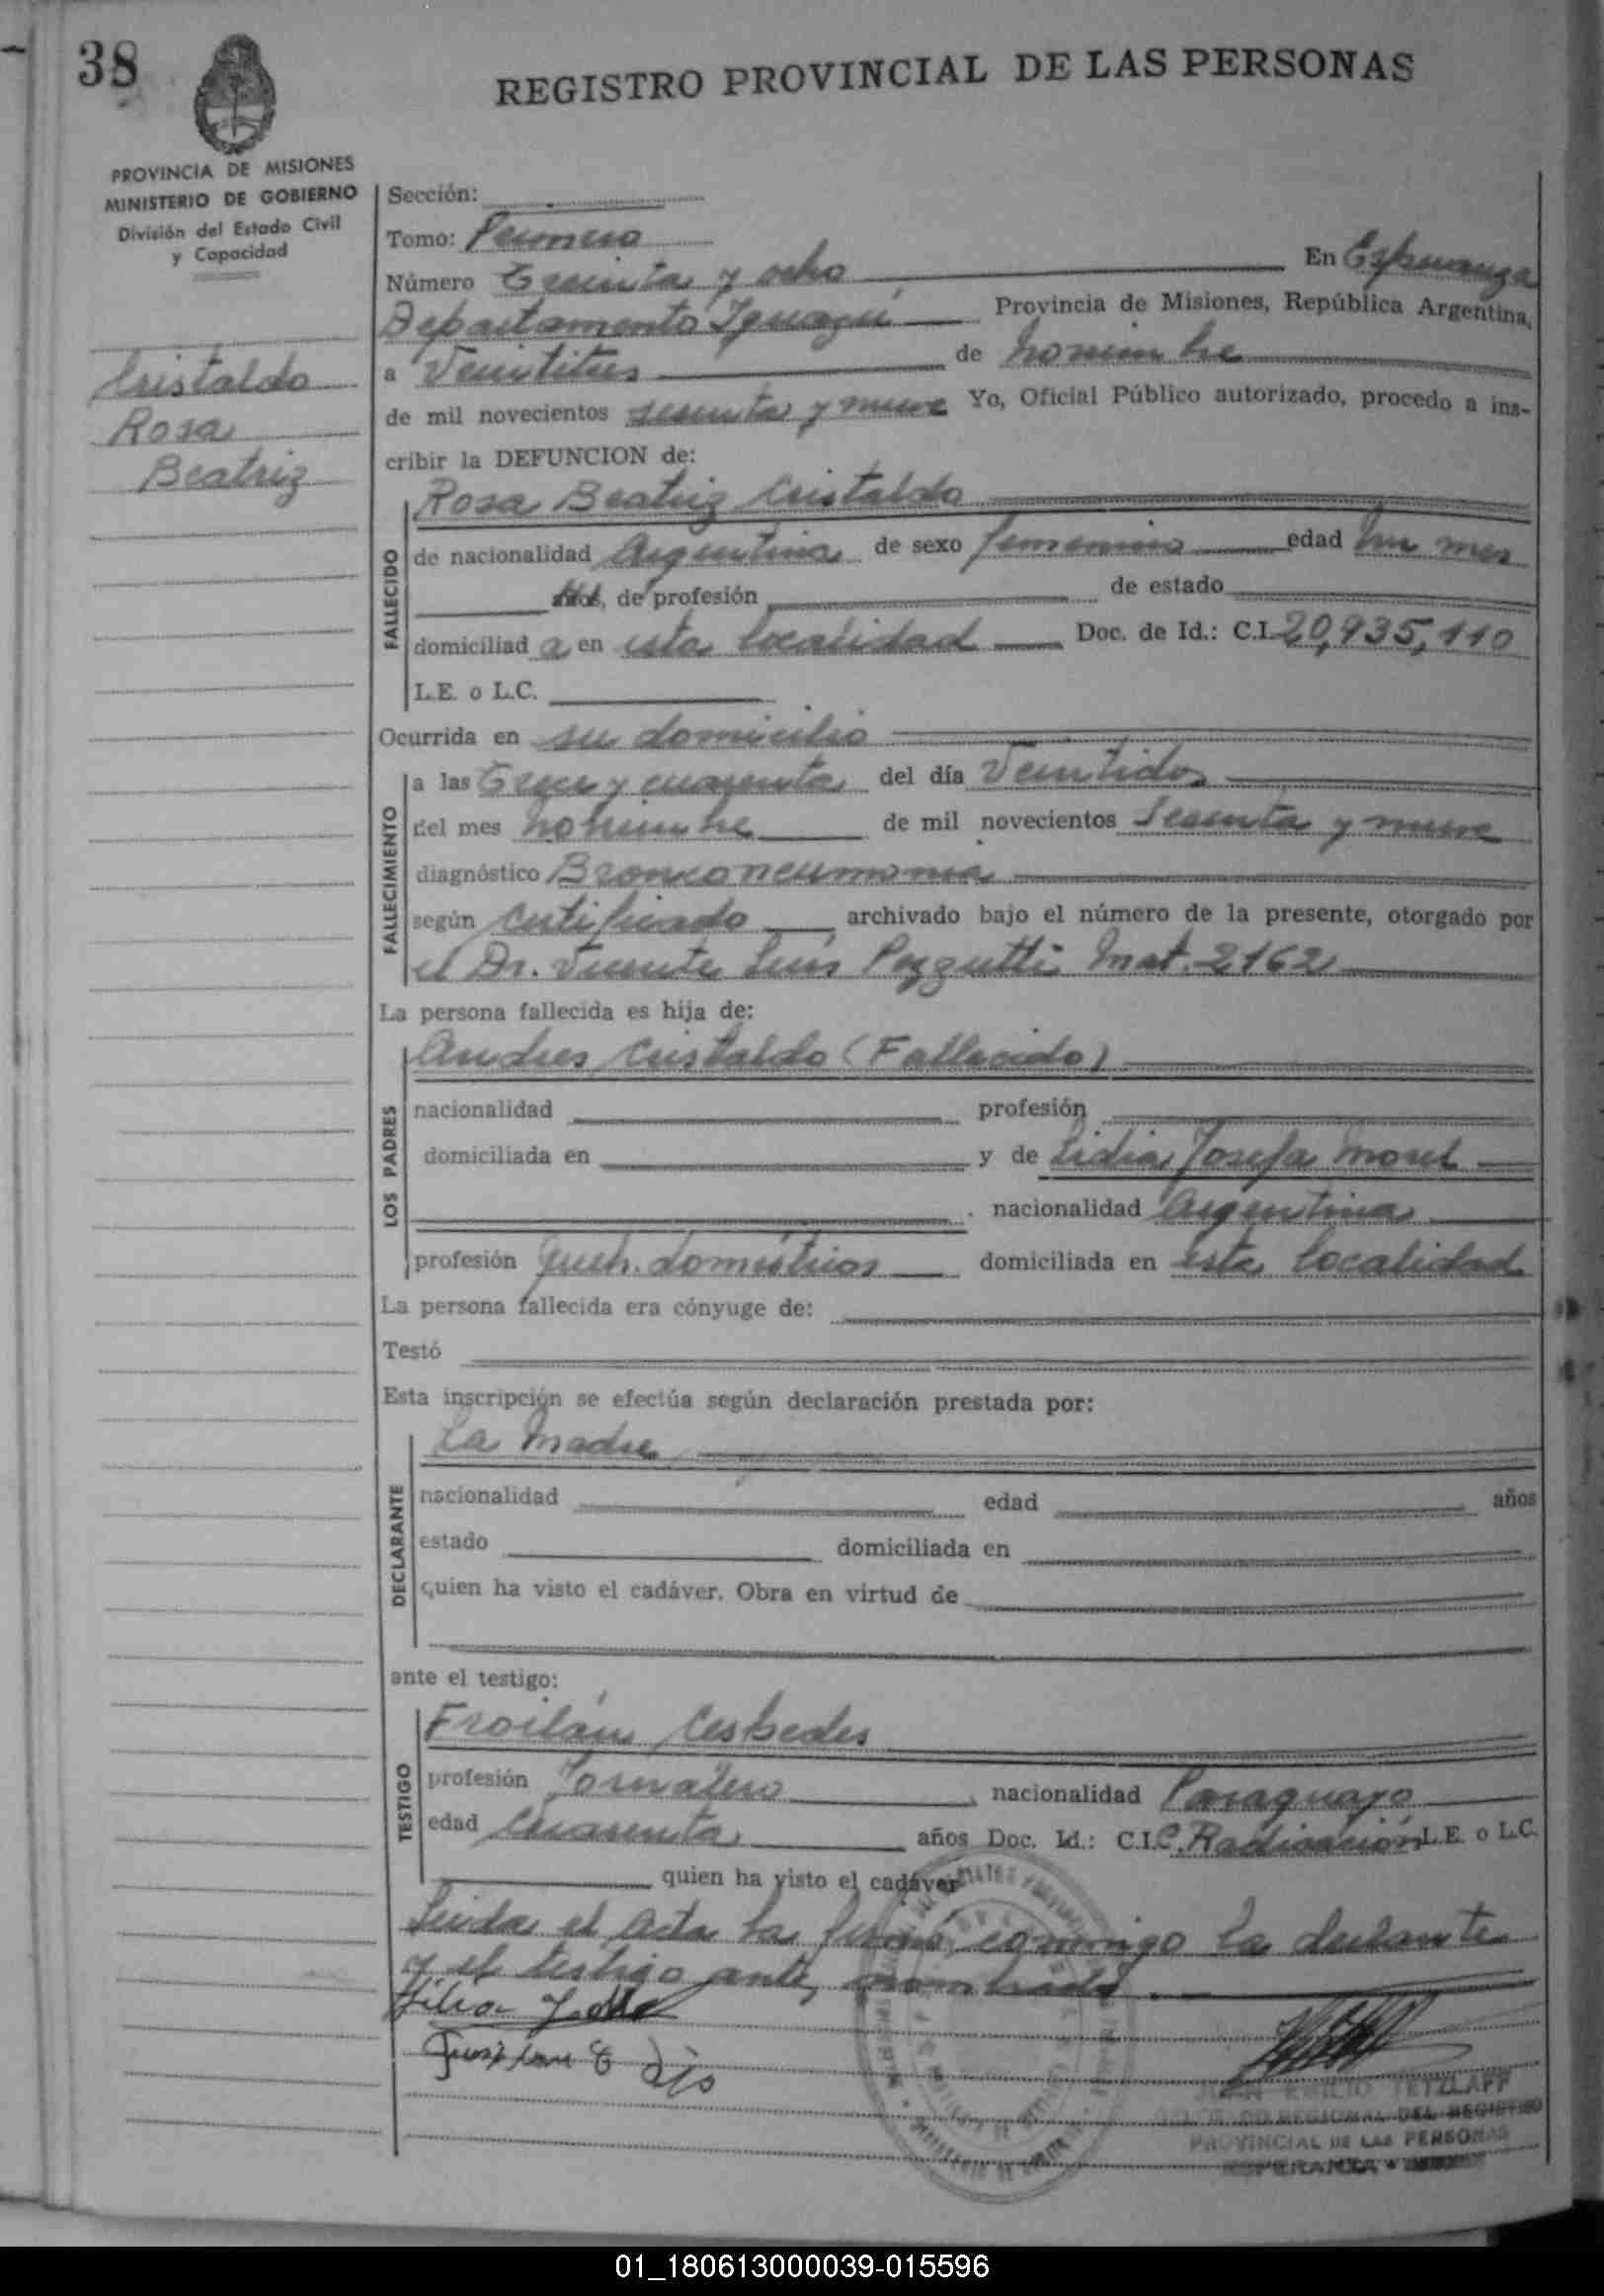 38
REGISTRO PROVINCIAL DE LAS PERSONAS
PROVINCIA DE MISIONES
MINISTERIO DE GOBIERNO
División del Estado Civil
y Capacidad
Cristaldo
Rosa
Beatriz
Sección:
Tomo: Primero
Número Treinta y ocho En Esperanza
Departamento Iguazú Provincia de Misiones, República Argentina,
a Veintitres de noviembre
de mil novecientos sesenta y nueve Yo, Oficial Público autorizado, procedo a ins-
cribir la DEFUNCION de:
FALLECIDO
Rosa Beatriz Cristaldo
de nacionalidad Argentina de sexo femenino edad un mes
, de profesión de estado
domiciliad a en esta localidad Doc. de Id.: C.I. 20,935,110
L.E. o L.C.
Ocurrida en su domicilio
FALLECIMIENTO
a las Trece y cuarenta del día Veintidos
del mes noviembre de mil novecientos Sesenta y nueve
diagnóstico Bronconeumonia
según certificado archivado bajo el número de la presente, otorgado por
el Dr. Vicente Luis Pezzutti Mat. 2162
La persona fallecida es hija de:
LOS PADRES
Andres Cristaldo (Fallecido)
nacionalidad profesión
domiciliada en y de Lidia Josefa Morel
. nacionalidad Argentina
profesión queh. domésticos domiciliada en esta localidad
La persona fallecida era cónyuge de:
Testó
Esta inscripción se efectúa según declaración prestada por:
DECLARANTE
La Madre
nacionalidad edad años
estado domiciliada en
quien ha visto el cadáver. Obra en virtud de
ante el testigo:
TESTIGO
Froilán Cespedes
profesión Jornalero , nacionalidad Paraguayo
edad Cuarenta años Doc. Id.: C.I. C. Radicación L.E. o L.C.
quien ha visto el cadáver
Leida el Acta la firmó conmigo la declarante
y el testigo ante, nombrado.
JUAN EMILIO TETZLAFF
REGIONAL DEL REGISTRO
PROVINCIAL DE LAS PERSONAS
ESPERANZA
01_180613000039-015596